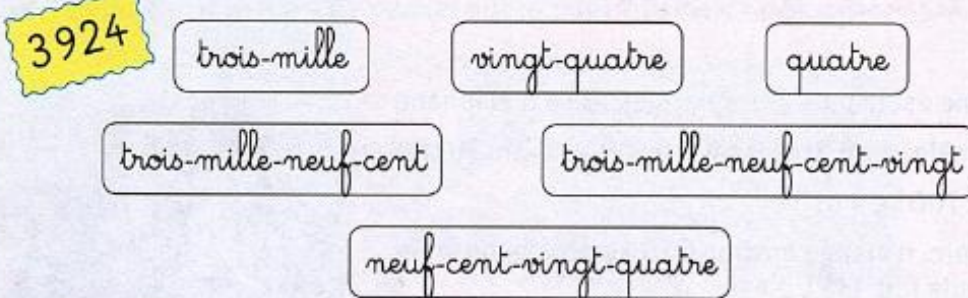 3924
trois-mille vingt-quatre quatre
trois-mille-neuf-cent trois-mille-neuf-cent-vingt
neuf-cent-vingt-quatre